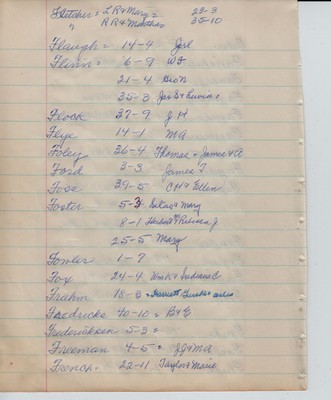 Fletcher = L R & Mary = 23-3
" R R & Martha = 35-10
Flaugh = 14-4 Joel
Flinn = 6-9 W F
21-4 Geo N
35-3 Jas S &
Flook 37-9 J. H
Flye 14-1 M A
Foley 36-4 Thomas & James & A
Ford 3-3 James T
Foss 39-5 C H & Ellen
Foster 5-3 & Mary
8-1 Herbert & Rebecca J
25-5 Mary
Fowler 1-7
Fox 24-4 & Indiana C
Frahm 18-8 = Harriett
Fredricks 40-10 = B & E
Fredericksen 5-3 =
Freeman 4-5 = J G & M A
French = 22-11 Taylor & Marie